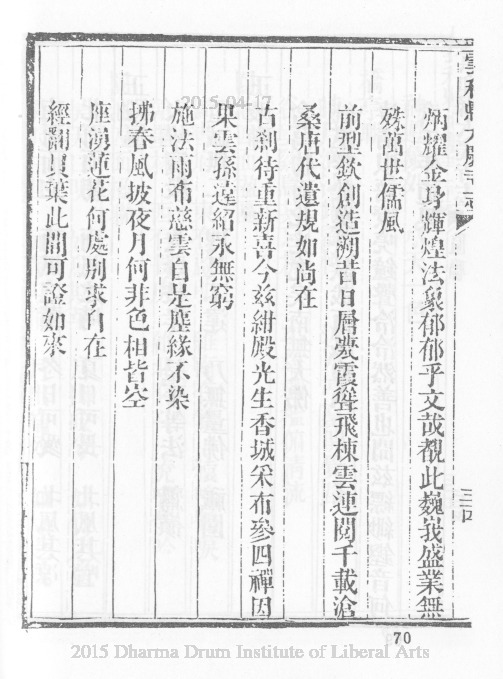 雲和縣大慶寺志
炳耀金身輝煌法象郁郁乎文哉覩此巍峩盛業無
殊萬世儒風
前型欽創造溯昔日層甍霞聳飛棟雲連閱千載滄
桑唐代遺規如尚在
古刹待重新喜今兹紺殿光生香城采布參四禪因
果雲孫遠紹永無窮
施法雨布慈雲自是塵緣不染
拂春風披夜月何非色相皆空
座湧蓮花何處別求自在
經翻貝葉此間可證如來
三四
70
2015-04-17
2015 Dharma Drum Institute of Liberal Arts